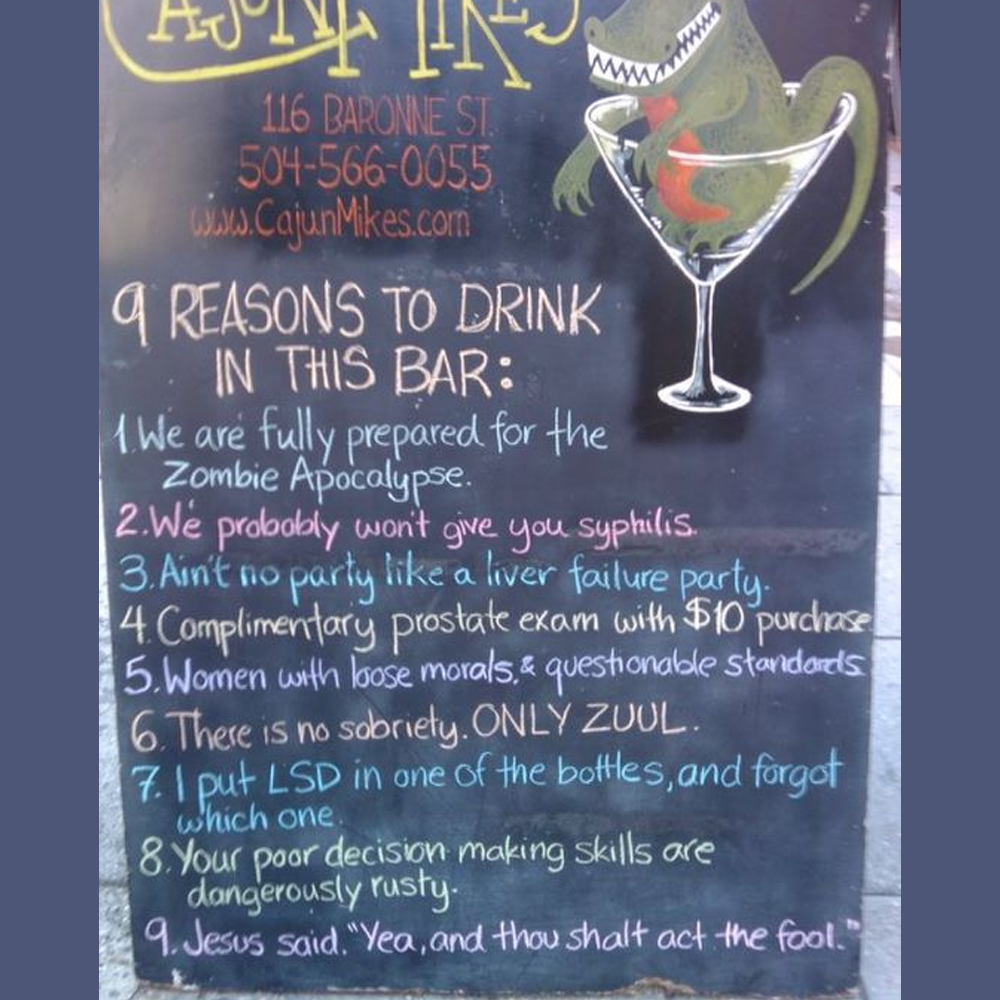 CAJUN MIKE'S
116 BARONNE ST.
504-566-0055
www.CajunMikes.com
9 REASONS TO DRINK
IN THIS BAR:
1. We are fully prepared for the
Zombie Apocalypse.
2. We probably won't give you syphilis.
3. Ain't no party like a liver failure party.
4. Complimentary prostate exam with $10 purchase
5. Women with loose morals, & questionable standards
6. There is no sobriety. ONLY ZUUL.
7. I put LSD in one of the bottles, and forgot
which one.
8. Your poor decision making skills are
dangerously rusty.
9. Jesus said. "Yea, and thou shalt act the fool."